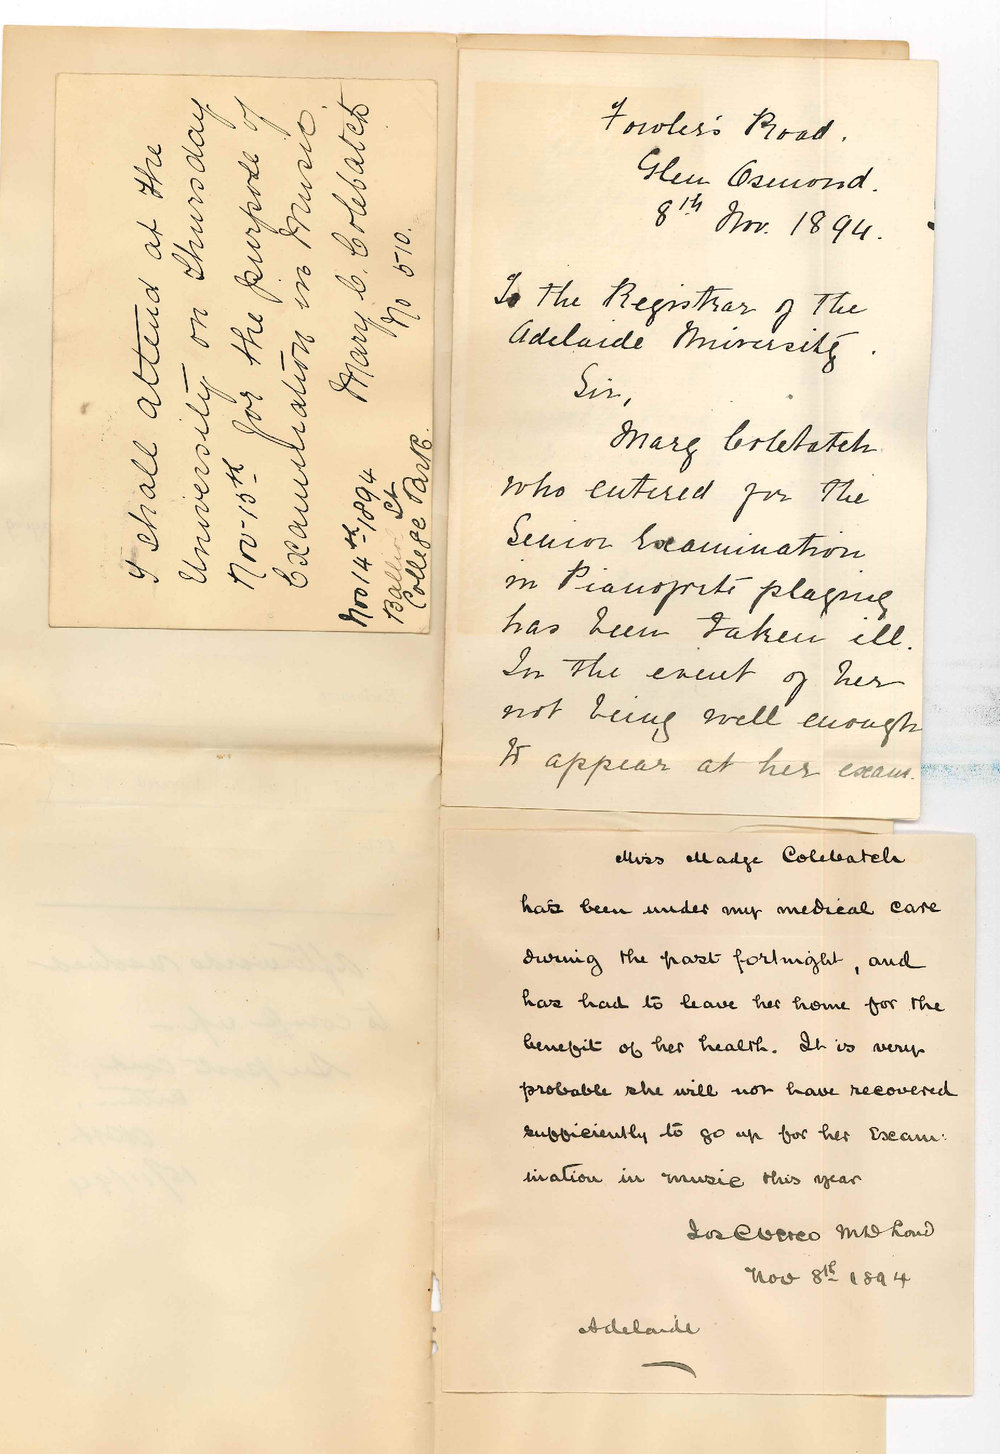 I shall attend at the
University on Thursday
Nov. 15th for the purpose of
Examination in Music
Mary C. Colebatch
No 510.
Nov 14th 1894
St
College Park.
Fowler's Road.
Glen Osmond.
8th Nov. 1894.
To the Registrar of the
Adelaide University.
Sir,
Mary Colebatch
who entered for the
Senior Examination
in Pianoforte playing
has been taken ill.
In the event of her
not being well enough
to appear at her exam.
Miss Madge Colebatch
has been under my medical care
during the past fortnight, and
has had to leave her home for the
benefit of her health. It is very
probable she will not have recovered
sufficiently to go up for her Exam:
ination in music this year
Jos C Verco MD Lond
Nov 8th 1894
Adelaide